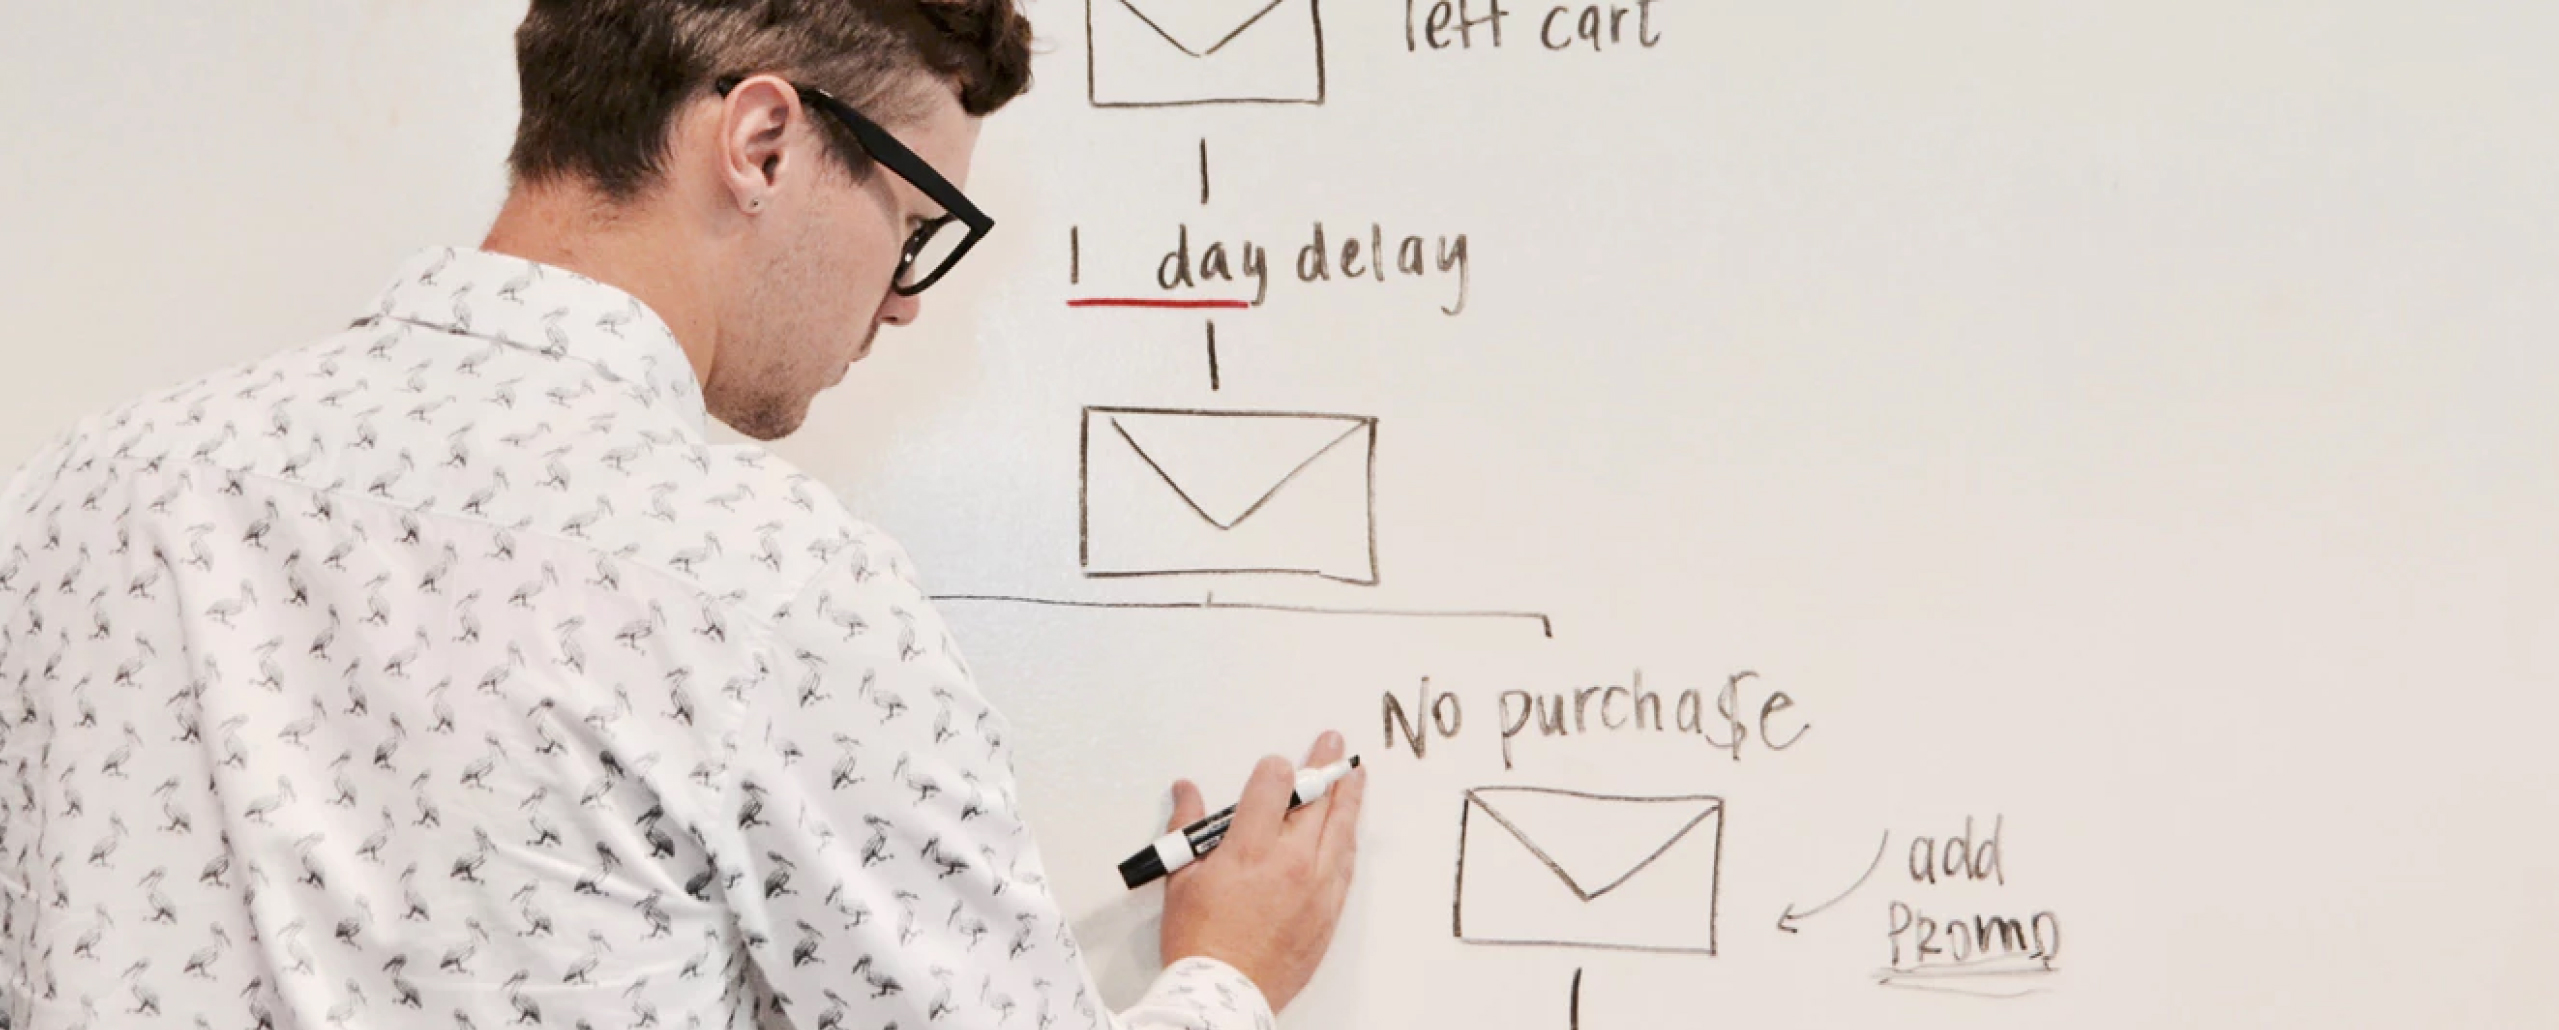 left cart
1 day delay
No purcha$e
add
PROMO